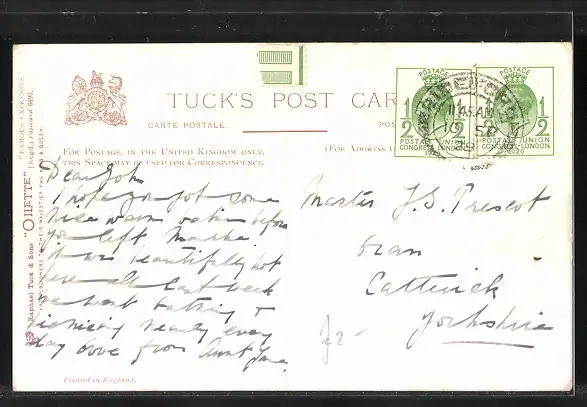 TUCK'S POST CAR
CARTE POSTALE.
POS
FOR POSTAGE, IN THE UNITED KINGDOM ONLY,
THIS SPACE MAY BE USED FOR CORRESPONDENCE.
(FOR ADDRESS
"FAMOUS EXPRESSES"
"OILETTE" [Regd.] POSTCARD 6491.
Raphael Tuck & Sons
POSTAGE
1/2 1/2
POSTAL UNION
CONGRESS LONDON
1929
POSTAGE
1/2 1/2
POSTAL UNION
CONGRESS LONDON
1929
11 45 AM
SP
29
Dear Joh
I hope you got some
nice warm before
you left
It was beautifully hot
here all last week
we went bathing &
picnicing nearly every
day love from Aunt Jane.
Master J. S. Prescot
Catterick
Yorkshire
Printed in England.